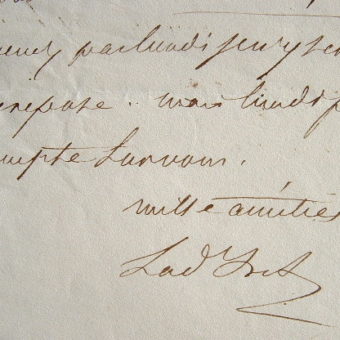 par lundi je n'y se
repose .. mais lundi j
compte sur vous.
mille amitiés